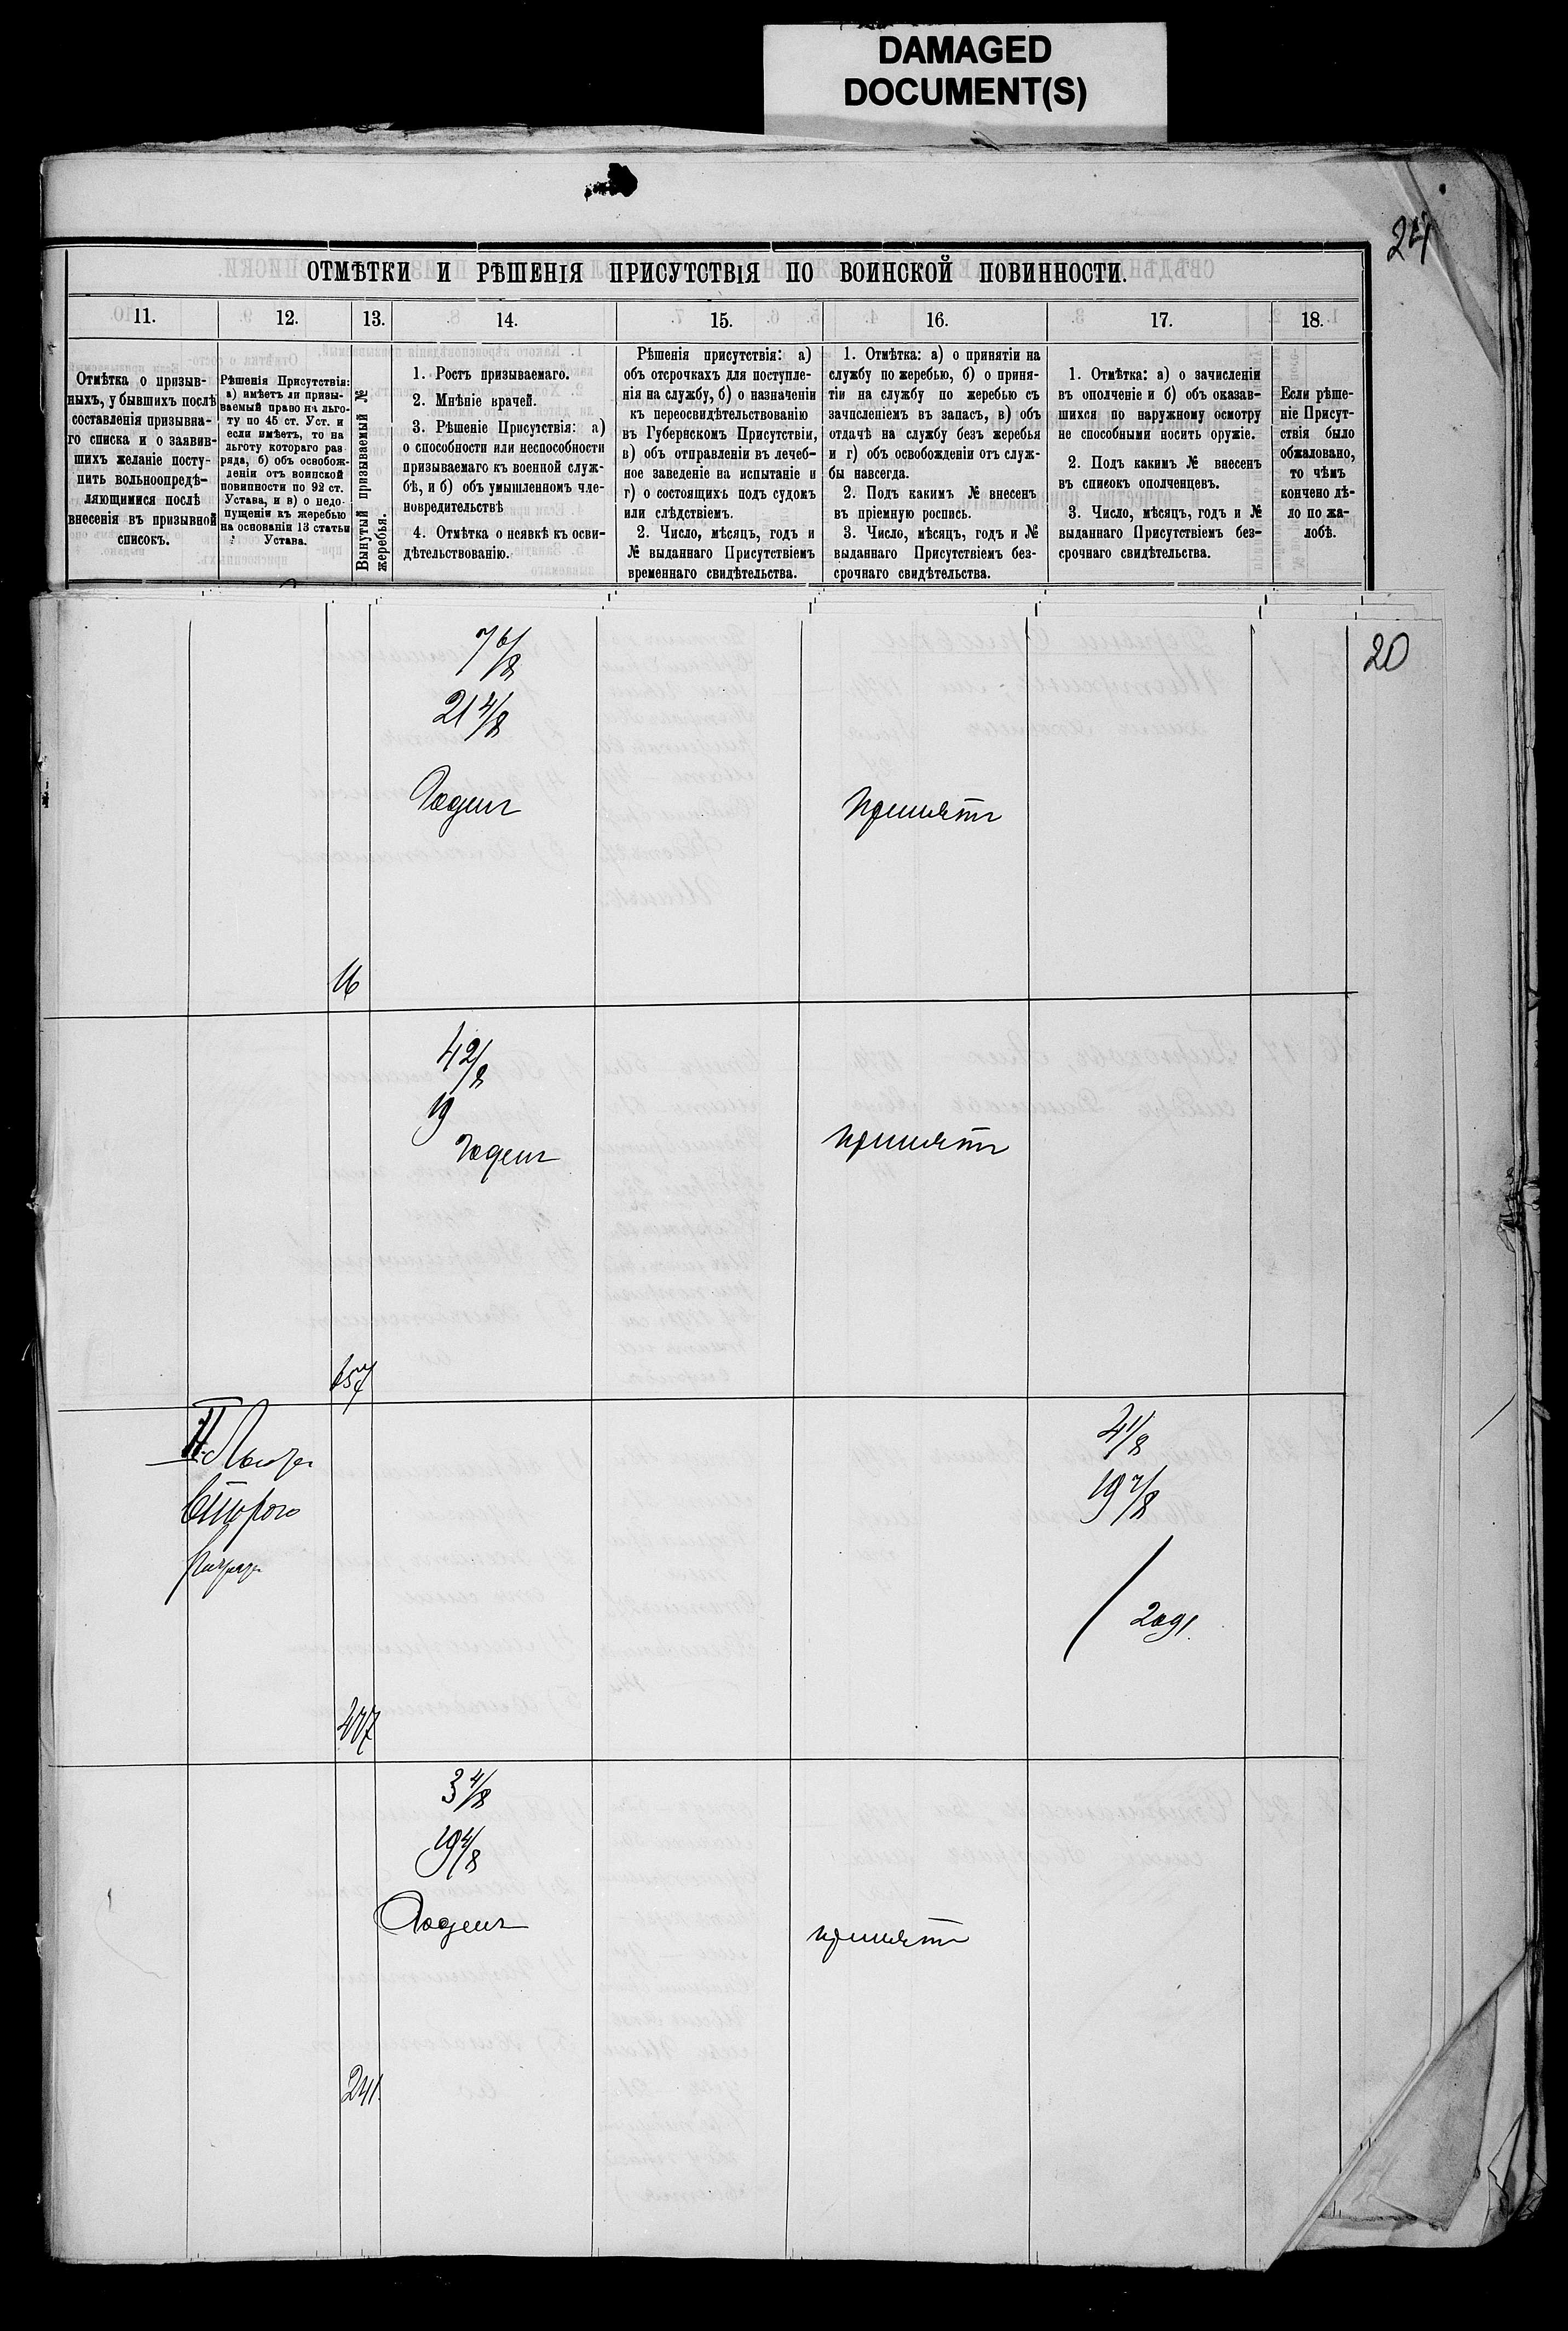 DAMAGED
DOCUMENT(S)
24
ОТМѢТКИ И РѢШЕНІЯ ПРИСУТСТВІЯ ПО ВОИНСКОЙ ПОВИННОСТИ.
11.
12.
13.
14.
15.
16.
17.
18.
Отмѣтка о призыв-
ныхъ, у бывшихъ послѣ
составленія призывна-
го списка и о заявив-
шихъ желаніе посту-
пить вольноопредѣ-
ляющимися послѣ
внесенія въ призывной
списокъ.
Рѣшенія Присутствія:
а) имѣетъ ли призы-
ваемый право на льго-
ту по 45 ст. Уст. и
если имѣетъ, то на
льготу котораго раз
ряда, б) объ освобож-
деніи отъ воинской
повинности по 92 ст.
Устава, и в) о недо-
пущеніи къ жеребью
на основаніи 13 статьи
Устава.
Вынутый призываемый №
жеребья.
1. Ростъ призываемаго.
2. Мнѣніе врачей.
3. Рѣшеніе Присутствія: а)
о способности или неспособности
призываемаго къ военной служ-
бѣ, и б) объ умышленномъ чле-
новредительствѣ
4. Отмѣтка о неявкѣ къ осви-
дѣтельствованію.
Рѣшенія присутствія: а)
объ отсрочкахъ для поступле-
нія на службу, б) о назначеніи
къ переосвидѣтельствованію
въ Губернскомъ Присутствіи,
в) объ отправленіи въ лечеб-
ное заведеніе на испытаніе и
г) о состоящихъ подъ судомъ
или слѣдствіемъ.
2. Число, мѣсяцъ, годъ и
№ выданнаго Присутствіемъ
временнаго свидѣтельства.
1. Отмѣтка: а) о принятіи на
службу по жеребью, б) о приня-
тіи на службу по жеребью съ
зачисленіемъ въ запасъ, в) объ
отдачѣ на службу безъ жеребья
и г) объ освобожденіи отъ служ-
бы навсегда.
2. Подъ какимъ № внесенъ
въ пріемную роспись.
3. Число, мѣсяцъ, годъ и №
выданнаго Присутствіемъ без-
срочнаго свидѣтельства.
1. Отмѣтка: а) о зачисленіи
въ ополченіе и б) объ оказав-
шихся по наружному осмотру
не способными носить оружіе.
2. Подъ какимъ № внесенъ
въ списокъ ополченцевъ.
3. Число, мѣсяцъ, годъ и №
выданнаго Присутствіемъ без-
срочнаго свидѣтельства.
Если рѣше-
ніе Присут-
ствія было
обжаловано,
то чѣмъ
кончено дѣ-
ло по жа-
лобѣ.
20
7 6/8
21 4/8
Годенъ
принятъ
16
4 2/8
19
годенъ
принятъ
157
II
Второго
4 1/8
19 7/8
477
3 4/8
19 4/8
Годенъ
принятъ
241